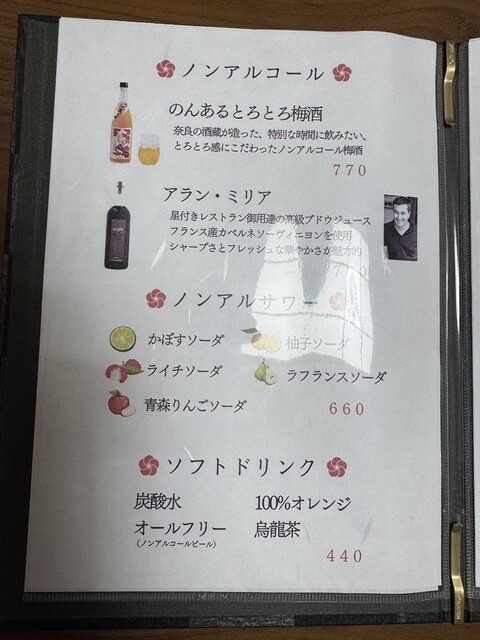 ノンアルコール
のんあるとろとろ梅酒
奈良の酒蔵が造った、特別な時間に飲みたい、
とろとろ感にこだわったノンアルコール梅酒
770
アラン・ミリア
星付きレストラン御用達の高級ブドウジュース
フランス産カベルネソーヴィニヨンを使用
シャープさとフレッシュな華やかさが魅力的
ノンアルサワー
かぼすソーダ 柚子ソーダ
ライチソーダ ラフランスソーダ
青森りんごソーダ 660
ソフトドリンク
炭酸水 100%オレンジ
オールフリー 烏龍茶
(ノンアルコールビール)
440